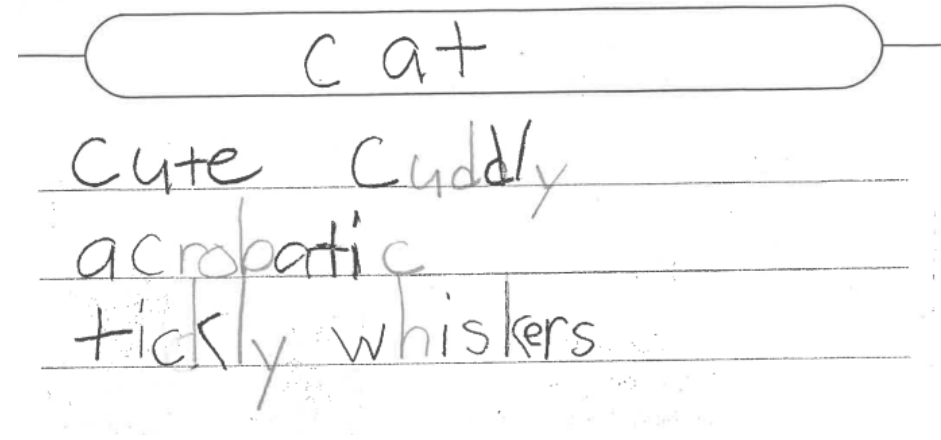 cat
Cute Cuddly
acrobatic
tickly whiskers